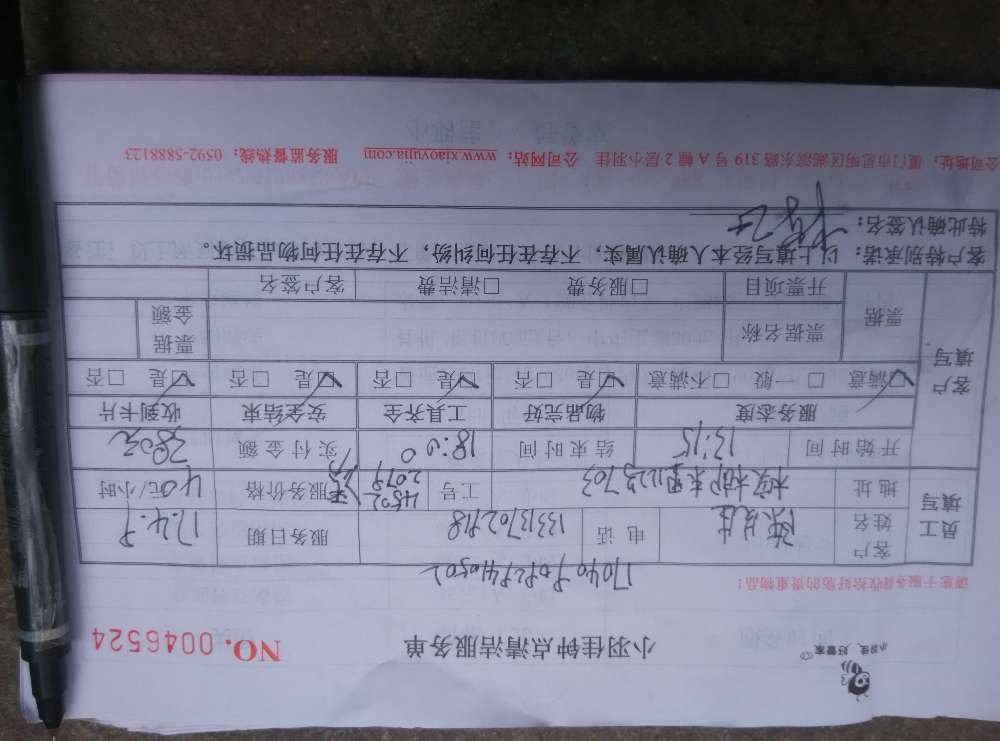 小羽佳 好管家
小羽佳钟点清洁服务单
NO. 0046524
请您于服务器收拾好您的贵重物品!
员工填写
客户姓名
电话
服务日期 17.4.9
地址
工号 4502 2079
服务价格 40元/小时
客户填写
开始时间 13:15 结束时间 18:00 实付金额 380元
服务态度 物品完好 工具齐全 安全结束 收到卡片
☑满意 □一般 □不满意 ☑是 □否 ☑是 □否 ☑是 □否 ☑是 □否
票据 票据名称 票据金额
开票项目 □服务费 □清洁费 客户签名
客户特别承诺:以上填写经本人确认属实,不存在任何纠纷,不存在任何物品损坏。
特此确认签名:
公司地址:厦门市思明区湖滨东路 319 号 A 幢 2 层小羽佳 公司网站:www.xiaoyujia.com 服务监督热线:0592-5888123